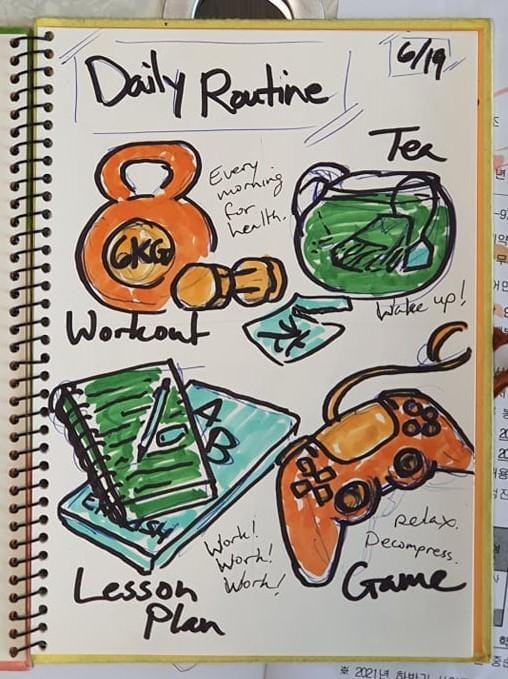 Daily Routine
6/19
6KG
Every
morning
for
health.
Workout
Tea
Wake up!
A
B
C
ENGLISH
Work!
Work!
Work!
Lesson
Plan
Relax.
Decompress.
Game